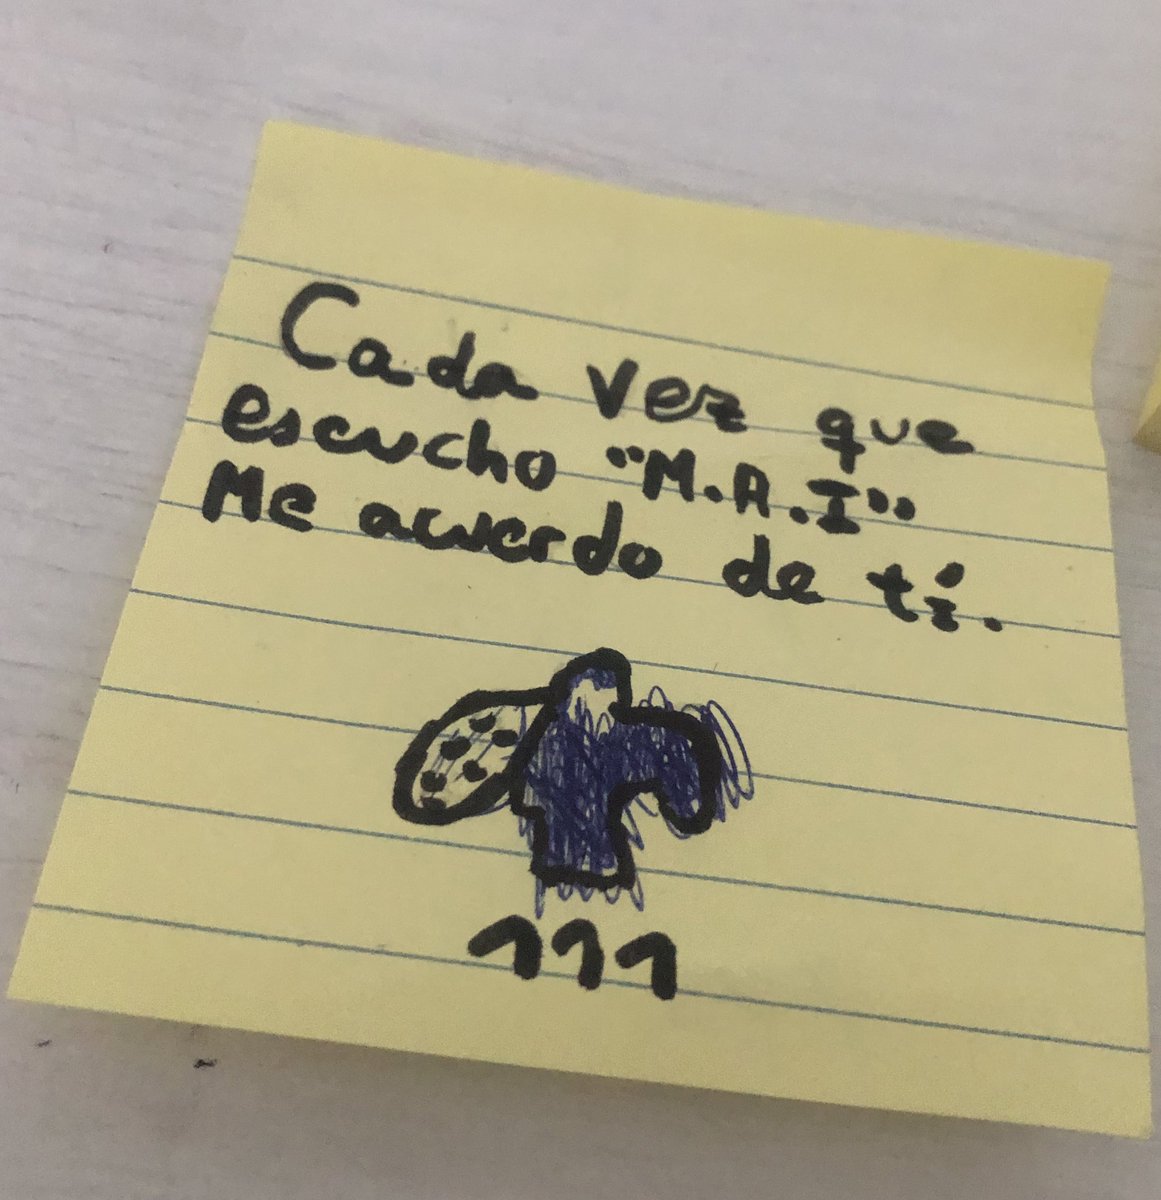 Cada vez que
escucho "M.A.I"
Me acuerdo de tí.
111